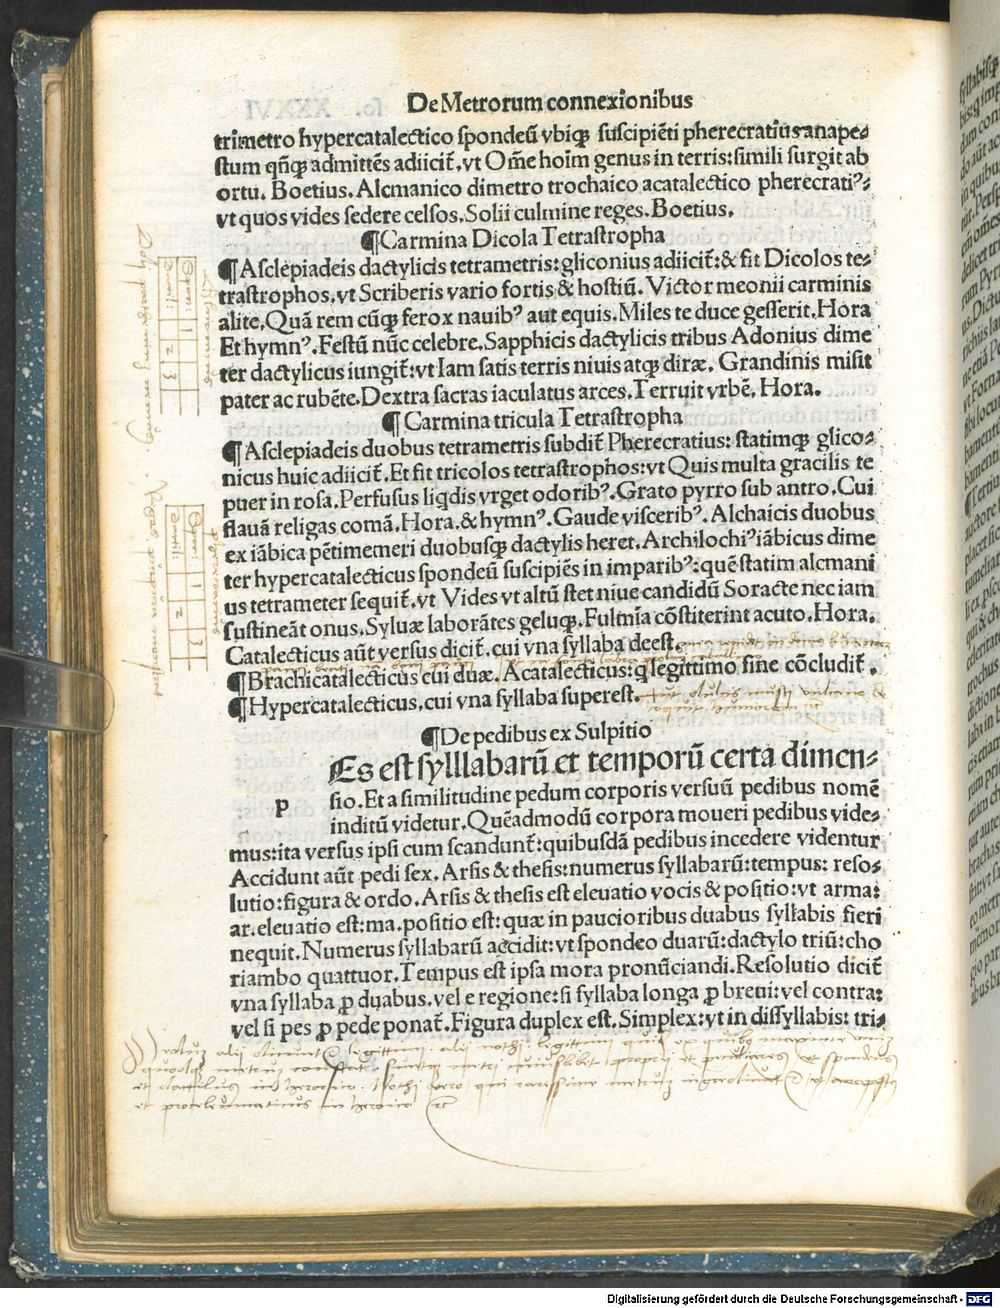 De Metrorum connexionibus
trimetro hypercatalectico ſpondeū vbiqꝫ ſuſcipiēti pherecratius anape⸗
ſtum qñqꝫ admittēs adiicit᷑. vt Om̄e hoīm genus in terris: ſimili ſurgit ab
ortu. Boetius. Alcmanico dimetro trochaico acatalectico pherecratiꝰ⸗
vt quos vides ſedere celſos. Solii culmine reges. Boetius.
¶Carmina Dicola Tetraſtropha
¶Aſclepiadeis dactylicis tetrametris: gliconius adiicit᷑: & fit Dicolos te⸗
traſtrophos. vt Scriberis vario fortis & hoſtiū. Victor meonii carminis
alite. Quā rem cūqꝫ ferox nauibꝰ aut equis. Miles te duce geſſerit. Hora
Et hymnꝰ. Feſtū nūc celebre. Sapphicis dactylicis tribus Adonius dime
ter dactylicus iungit᷑: vt Iam ſatis terris niuis atqꝫ diræ. Grandinis miſit
pater ac rubēte. Dextra ſacras iaculatus arces. Terruit vrbē. Hora.
¶Carmina tricula Tetraſtropha
¶Aſclepiadeis duobus tetrametris ſubdit᷑ Pherecratius: ſtatimqꝫ glico⸗
nicus huic adiicit᷑. Et fit tricolos tetraſtrophos: vt Quis multa gracilis te
puer in roſa. Perfuſus liqdis vrget odoribꝰ. Grato pyrro ſub antro. Cui
flauā religas comā. Hora. & hymnꝰ. Gaude viſceribꝰ. Alchaicis duobus
ex iābica pētimemeri duobuſqꝫ dactylis heret. Archilochiꝰ iābicus dime
ter hypercatalecticus ſpondeū ſuſcipiēs in imparibꝰ: quē ſtatim alcmani
us tetrameter ſequit᷑. vt Vides vt altū ſtet niue candidū Soracte nec iam
ſuſtineāt onus. Syluæ laborātes geluqꝫ. Fulmīa cōſtiterint acuto. Hora.
Catalecticus aūt verſus dicit᷑. cui vna ſyllaba deeſt.
¶Brachicatalecticus cui duæ. Acatalecticus: q̄ legittimo fine cōcludit᷑.
¶Hypercatalecticus, cui vna ſyllaba ſupereſt.
¶De pedibus ex Sulpitio
p Es eſt ſylllabarū et temporū certa dimen⸗
ſio. Et a ſimilitudine pedum corporis verſuū pedibus nomē
inditū videtur. Quēadmodū corpora moueri pedibus vide⸗
mus: ita verſus ipſi cum ſcandunt᷑: quibuſdā pedibus incedere videntur
Accidunt aūt pedi ſex. Arſis & theſis: numerus ſyllabarū: tempus: reſo⸗
lutio: figura & ordo. Arſis & theſis eſt eleuatio vocis & poſitio: vt arma:
ar. eleuatio eſt: ma. poſitio eſt: quæ in paucioribus duabus ſyllabis fieri
nequit. Numerus ſyllabarū accidit: vt ſpondeo duarū: dactylo triū: cho
riambo quattuor. Tempus eſt ipſa mora pronūciandi. Reſolutio dicit᷑
vna ſyllaba ꝓ duabus. vel e regione: ſi ſyllaba longa ꝓ breui: vel contra:
vel ſi pes ꝓ pede ponat᷑. Figura duplex eſt. Simplex: vt in diſſyllabis: tri⸗
alii dicunt legittimi alii nothi. legittimi ex quibus maxime
quodque metrum constat. proprii et peculiares ut spondeus
et dactilus in heroico. Nothi vero qui rarissime metrum ingrediuntur
et proceleumaticus in heroico
Digitalisierung gefördert durch die Deutsche Forschungsgemeinschaft - DFG